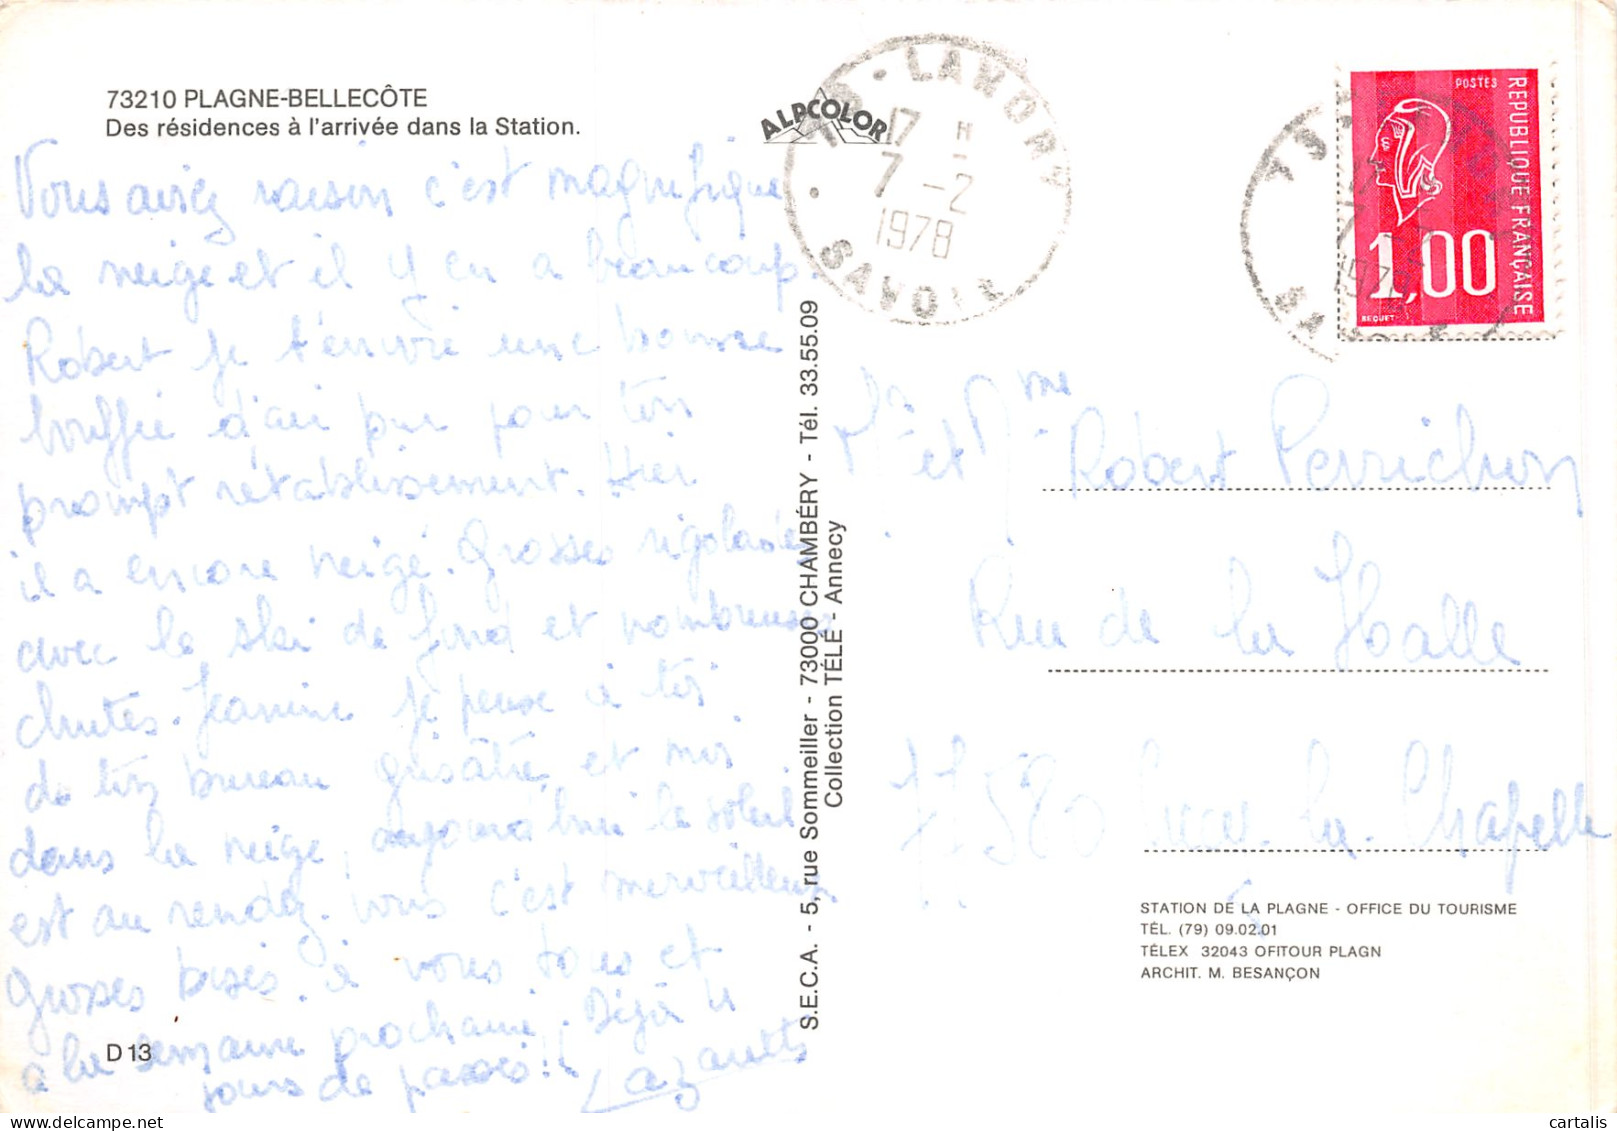 73210 PLAGNE-BELLECÔTE
Des résidences à l'arrivée dans la Station.
Vous aviez raison c'est magnifique
la neige et il y en a beaucoup.
Robert je t'envoie une bonne
bouffée d'air pur pour ton
prompt rétablissement. Hier
il a encore neigé. Grosses rigolades
avec le ski de fond et nombreuses
chutes. Jeanine je pense à toi
de ton bureau grisâtre et moi
dans la neige, aujourd'hui le soleil
est au rendez-vous c'est merveilleux
Grosses bises à vous tous et
à la semaine prochaine. Déjà 4
jours de passés!!
D 13
ALPCOLOR
S.E.C.A. - 5, rue Sommeiller - 73000 CHAMBÉRY - Tél. 33.55.09
Collection TÉLÉ - Annecy
17 H
7 - 2
1978
SAVOIE
POSTES
REPUBLIQUE FRANÇAISE
1,00
BEQUET
Mr et Mme Robert Perrichon
Rue de la Halle
la Chapelle
STATION DE LA PLAGNE - OFFICE DU TOURISME
TÉL. (79) 09.02.01
TÉLEX 32043 OFITOUR PLAGN
ARCHIT. M. BESANÇON
cartalis